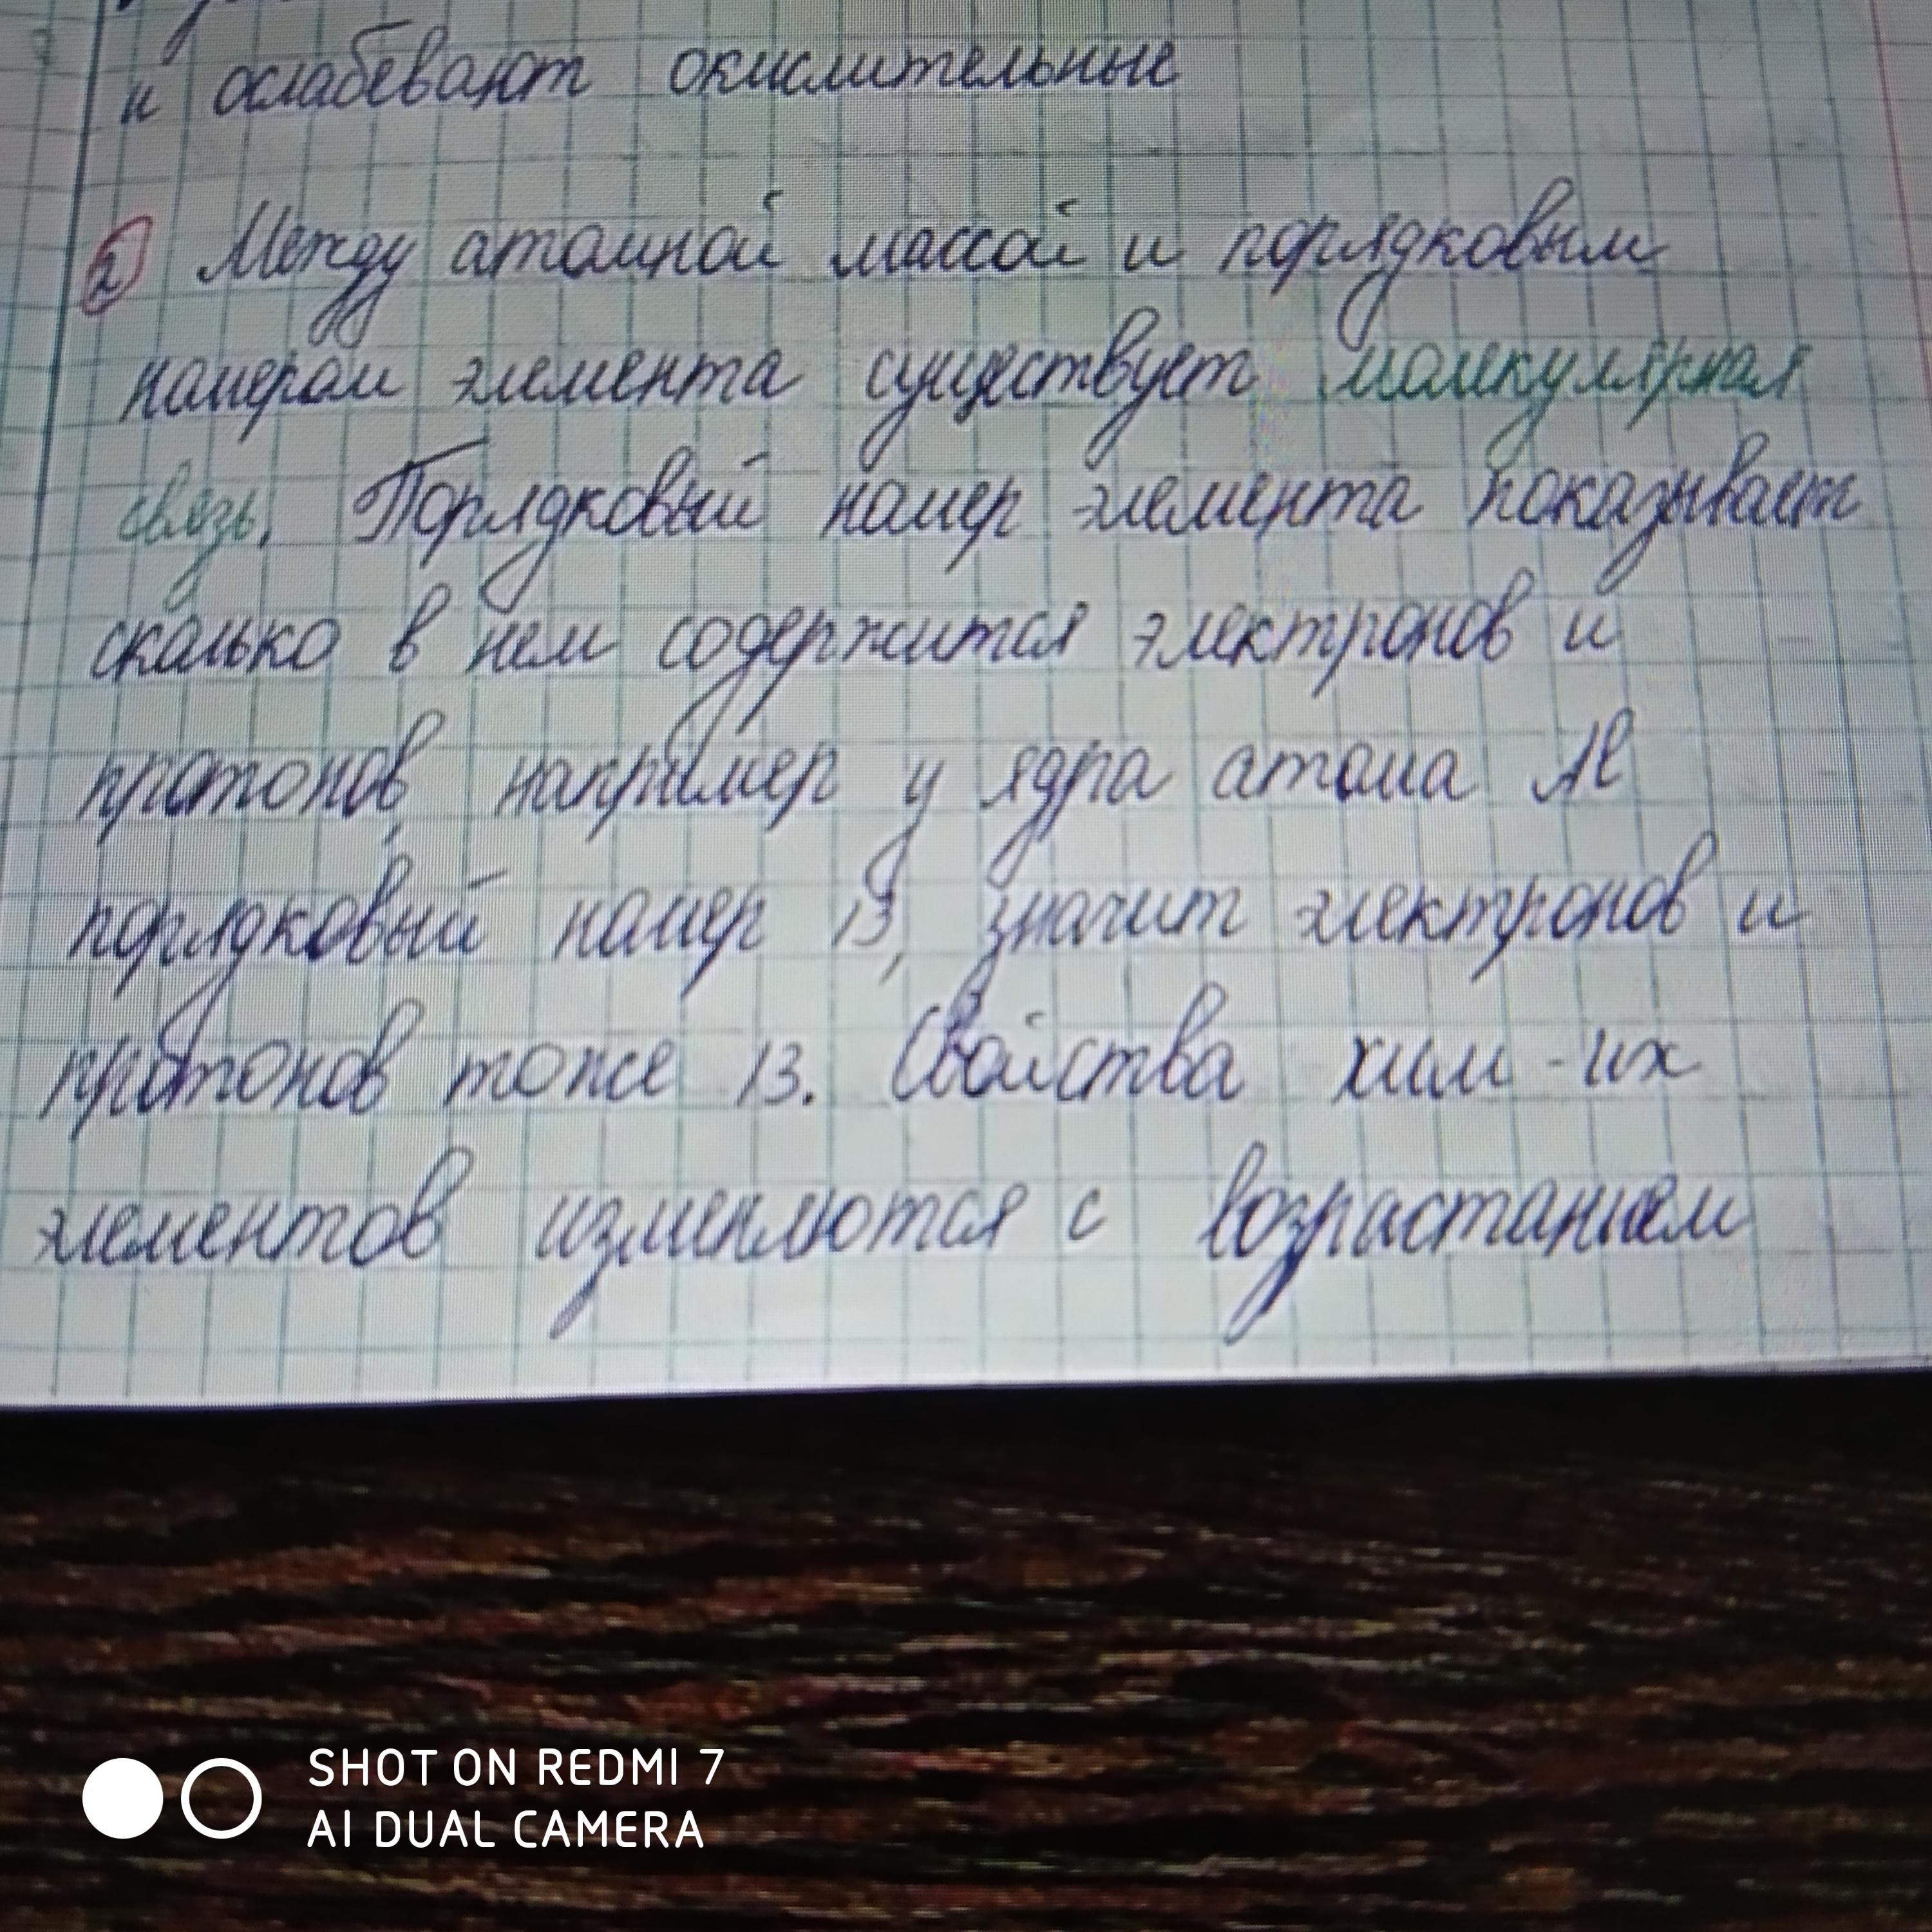 и ослабевают окислительные
2 Между атомной массой и порядковым
номером элемента существует молекулярная
связь. Порядковый номер элемента показывает
сколько в нем содержится электронов и
протонов, например у ядра атома Al
порядковый номер 13, значит электронов и
протонов тоже 13. Свойства хим-их
элементов изменяются с возрастанием
SHOT ON REDMI 7
AI DUAL CAMERA